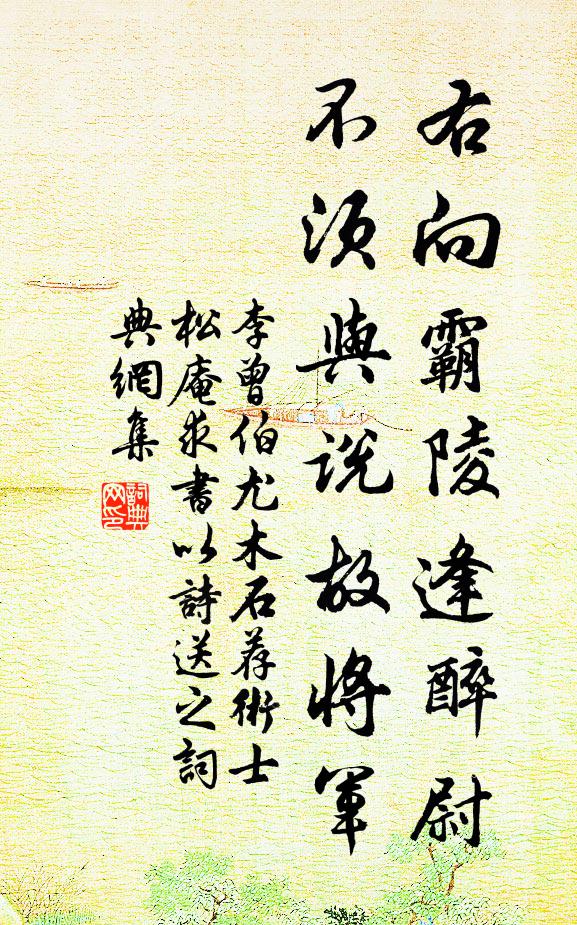 右向霸陵逢醉尉
不須與説故將軍
李曾伯尤木石荐術士
松庵求書以詩送之詞
典網集
詞典
网印